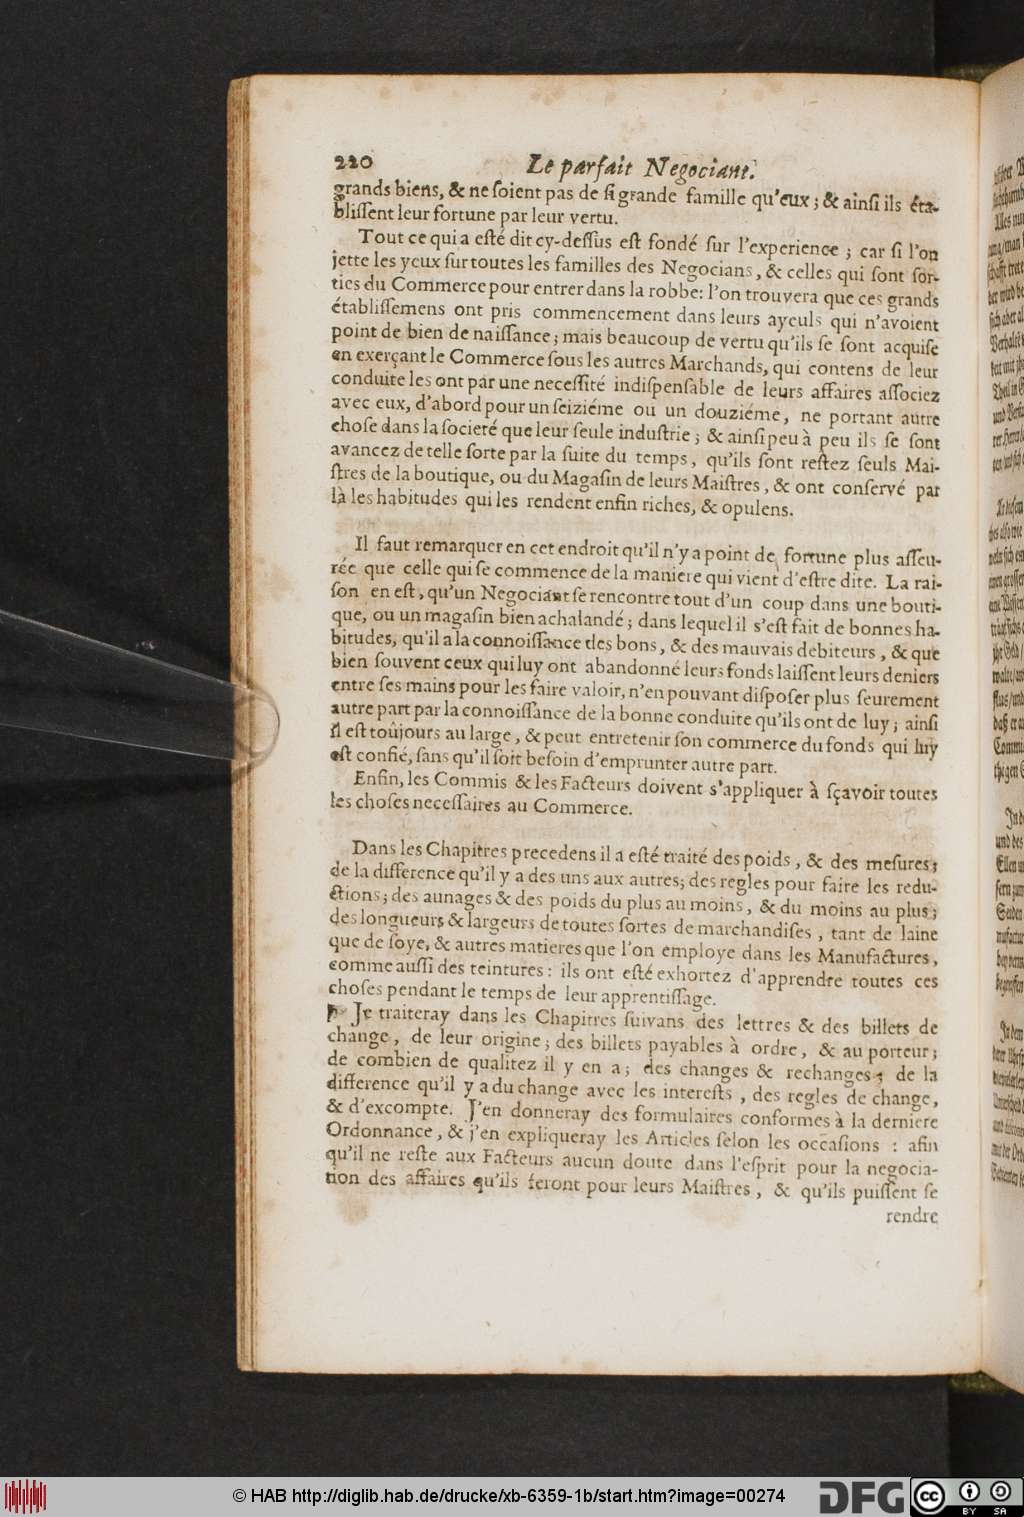 220 Le parfait Negociant.
grands biens, & ne ſoient pas de ſi grande famille qu'eux ; & ainſi ils éta-
bliſſent leur fortune par leur vertu.
Tout ce qui a eſté dit cy-deſſus eſt fondé ſur l'experience ; car ſi l'on
jette les yeux ſur toutes les familles des Negocians, & celles qui ſont ſor-
ties du Commerce pour entrer dans la robbe: l'on trouvera que ces grands
établiſſemens ont pris commencement dans leurs ayeuls qui n'avoient
point de bien de naiſſance ; mais beaucoup de vertu qu'ils ſe ſont acquiſe
en exerçant le Commerce ſous les autres Marchands, qui contens de leur
conduite les ont par une neceſſité indiſpenſable de leurs affaires aſſociez
avec eux, d'abord pour un ſeiziéme ou un douziéme, ne portant autre
choſe dans la ſocieté que leur ſeule induſtrie ; & ainſi peu à peu ils ſe ſont
avancez de telle ſorte par la ſuite du temps, qu'ils ſont reſtez ſeuls Mai-
ſtres de la boutique, ou du Magaſin de leurs Maiſtres, & ont conſervé par
là les habitudes qui les rendent enfin riches, & opulens.
Il faut remarquer en cet endroit qu'il n'y a point de fortune plus aſſeu-
rée que celle qui ſe commence de la maniere qui vient d'eſtre dite. La rai-
ſon en eſt, qu'un Negociant ſe rencontre tout d'un coup dans une bouti-
que, ou un magaſin bien achalandé ; dans lequel il s'eſt fait de bonnes ha-
bitudes, qu'il a la connoiſſance des bons, & des mauvais debiteurs, & que
bien ſouvent ceux qui luy ont abandonné leurs fonds laiſſent leurs deniers
entre ſes mains pour les faire valoir, n'en pouvant diſpoſer plus ſeurement
autre part par la connoiſſance de la bonne conduite qu'ils ont de luy ; ainſi
il eſt toûjours au large, & peut entretenir ſon commerce du fonds qui luy
eſt confié, ſans qu'il ſoit beſoin d'emprunter autre part.
Enfin, les Commis & les Facteurs doivent s'appliquer à ſçavoir toutes
les choſes neceſſaires au Commerce.
Dans les Chapitres precedens il a eſté traité des poids, & des meſures ;
de la difference qu'il y a des uns aux autres; des regles pour faire les redu-
ctions ; des aunages & des poids du plus au moins, & du moins au plus ;
des longueurs & largeurs de toutes ſortes de marchandiſes, tant de laine
que de ſoye, & autres matieres que l'on employe dans les Manufactures,
comme auſſi des teintures : ils ont eſté exhortez d'apprendre toutes ces
choſes pendant le temps de leur apprentiſſage.
☞ Je traiteray dans les Chapitres ſuivans des lettres & des billets de
change, de leur origine ; des billets payables à ordre, & au porteur ;
de combien de qualitez il y en a ; des changes & rechanges ; de la
difference qu'il y a du change avec les intereſts, des regles de change,
& d'excompte. J'en donneray des formulaires conformes à la derniere
Ordonnance, & j'en expliqueray les Articles ſelon les occaſions : afin
qu'il ne reſte aux Facteurs aucun doute dans l'eſprit pour la negocia-
tion des affaires qu'ils feront pour leurs Maiſtres, & qu'ils puiſſent ſe
rendre
© HAB http://diglib.hab.de/drucke/xb-6359-1b/start.htm?image=00274
DFG
cc BY SA